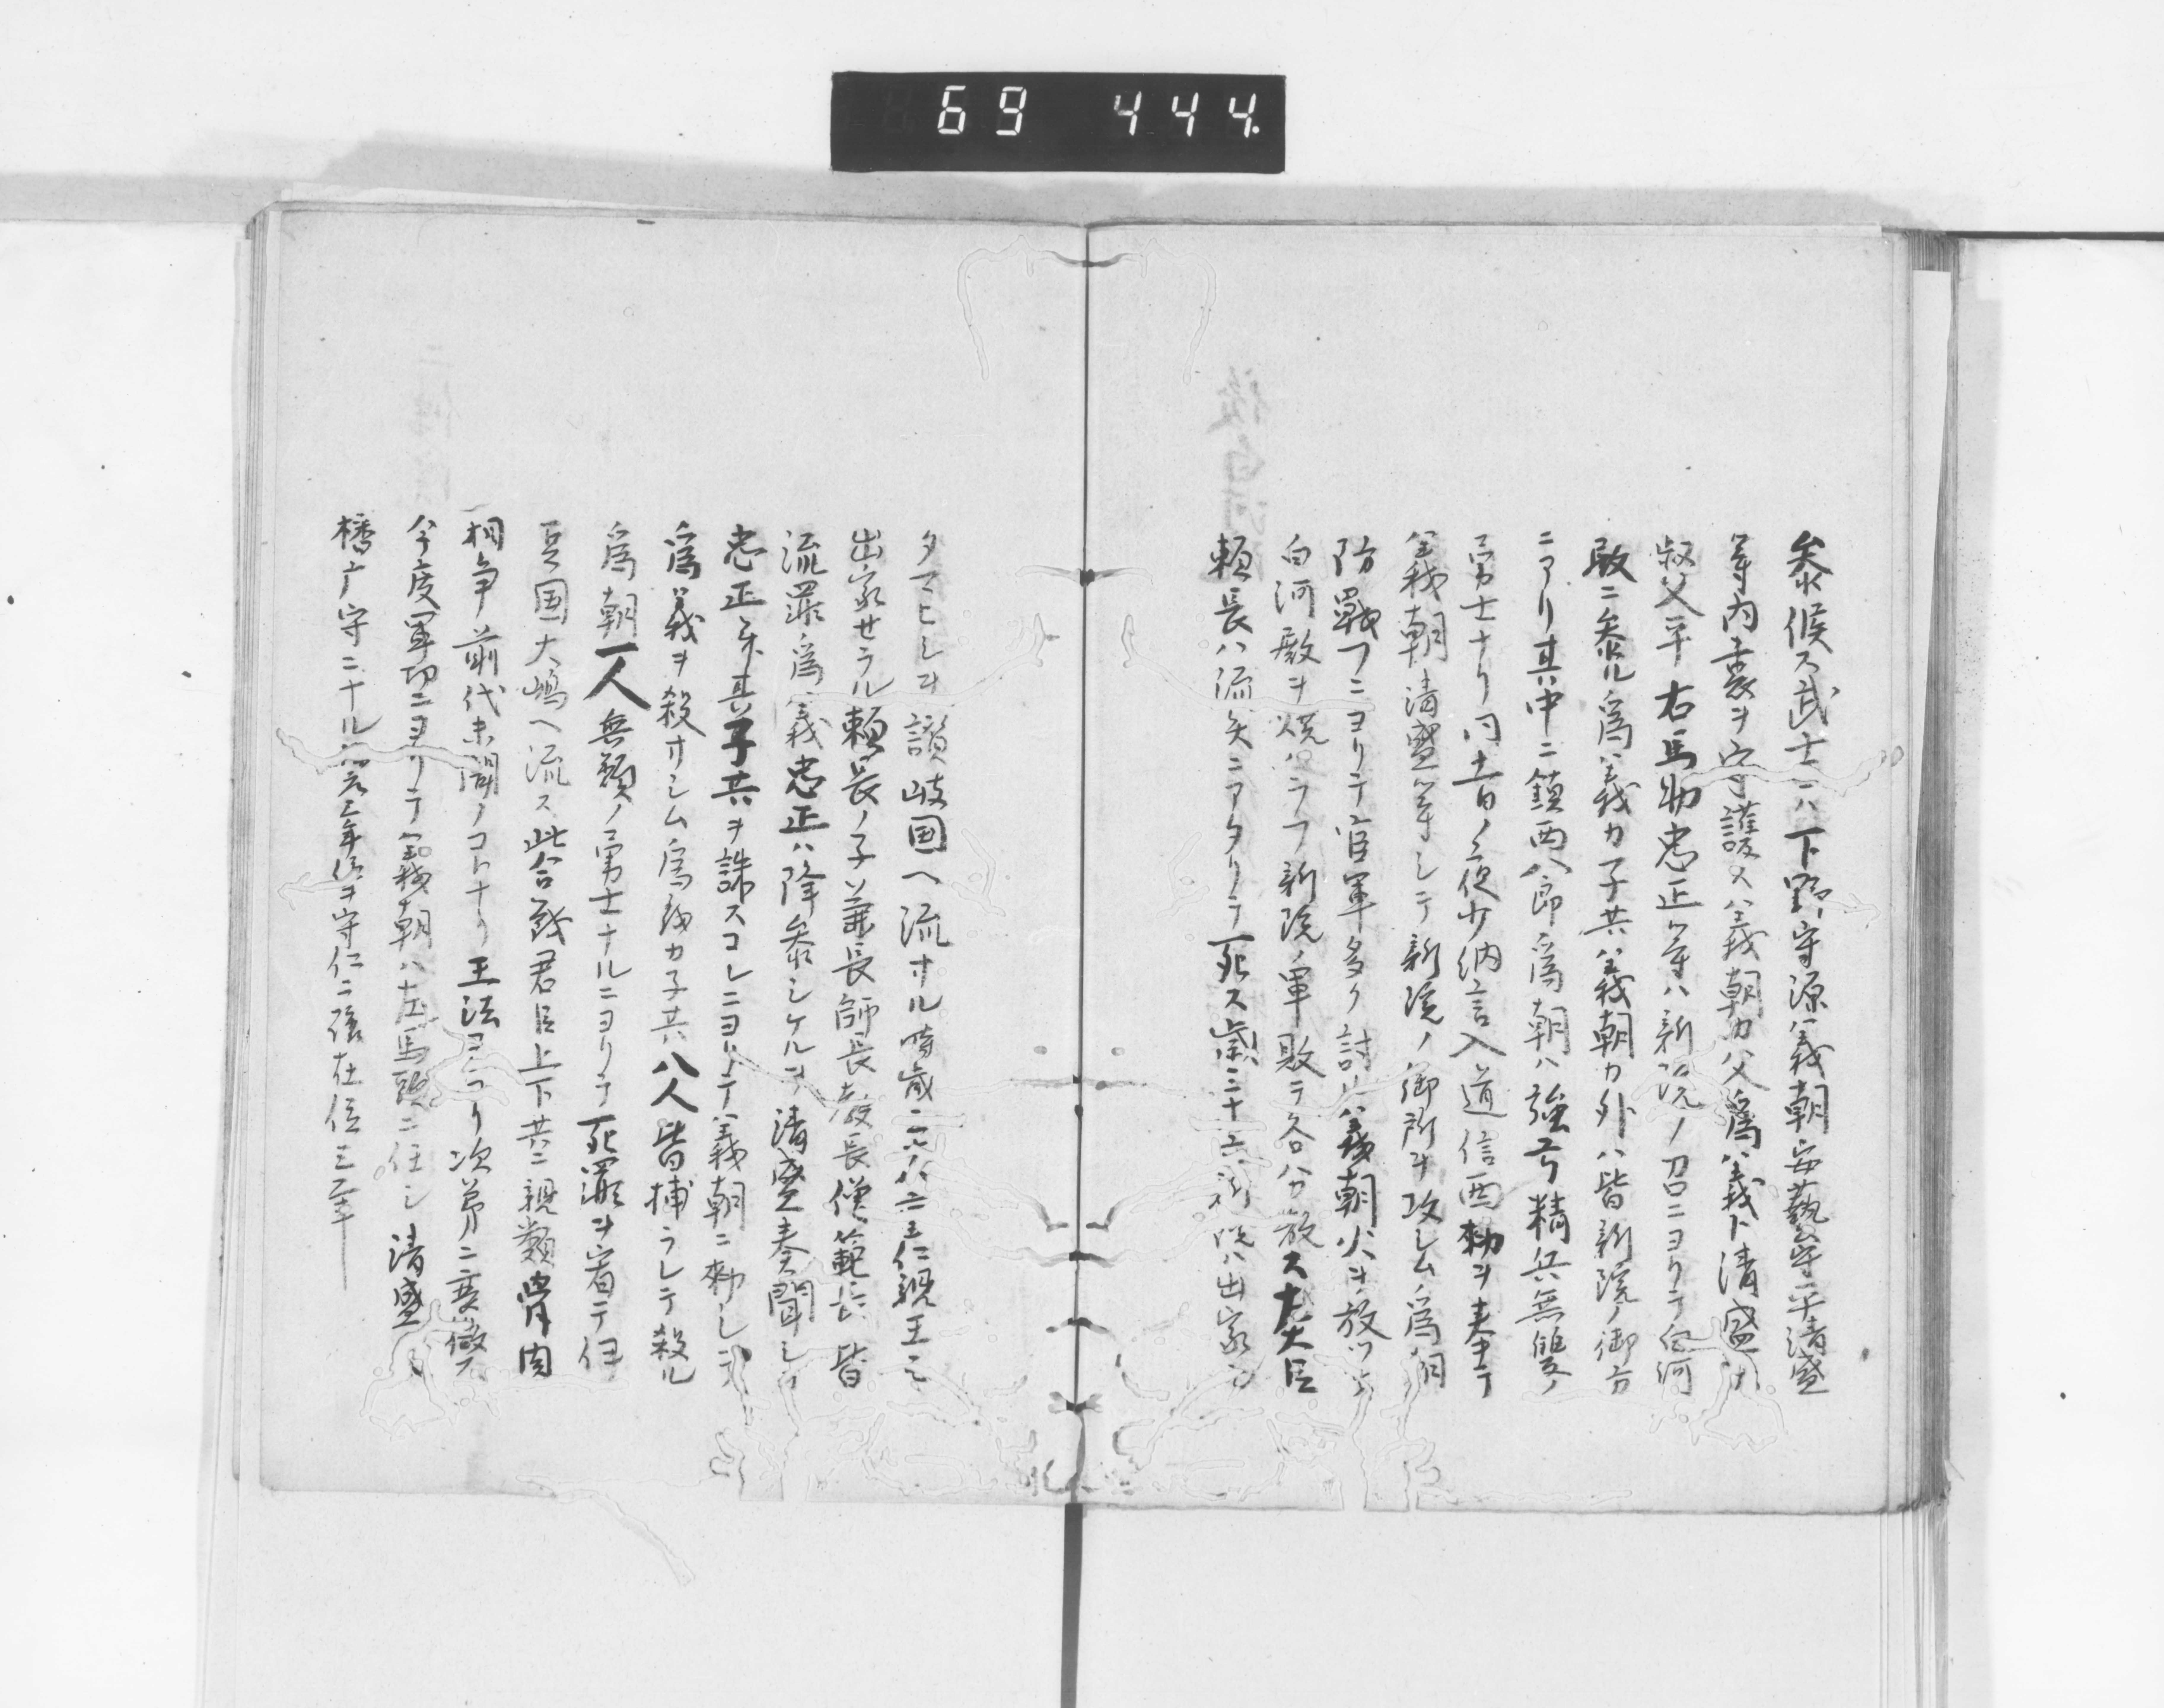 69 444
参候ス武士ニハ下野守源義朝安藝守平清盛
等内裏ヲ守護ス義朝カ父為義ト清盛カ
叔父平右馬助忠正等ハ新院ノ召ニヨリテ白河
殿ニ参ル為義カ子共義朝カ外ハ皆新院ノ御方
ニアリ其中ニ鎮西八郎為朝ハ強弓精兵無雙ノ
勇士ナリ同十一日ノ夜少納言入道信西勅ヲ奉テ
義朝清盛等シテ新院ノ御所ヲ攻シム為朝
防戦フニヨリテ官軍多ク討ル義朝火ヲ放ツテ
白河殿ヲ焼ハラフ新院ノ軍敗テ各分散ス左大臣
頼長ハ流矢ニアタリテ死ス歳三十六新院ハ出家シ
タマヒシヲ讃岐国ヘ流サル時歳 重仁親王モ
出家セラル頼長ノ子兼長師長教長僧範長皆
流罪為義忠正ハ降参シケルヲ清盛奏聞シテ
忠正并其子共ヲ誅スコレニヨリテ義朝ニ勅シテ
為義ヲ殺サシム為義カ子共八人皆捕ラレテ殺ル
為朝一人無類ノ勇士ナルニヨリテ死罪ヲ宥テ伊
豆国大嶋ヘ流ス此合戦君臣上下共ニ親類骨肉
相争前代未聞ノコトナリ王法ヨコヨリ次第ニ衰微ス
今度軍功ニヨリテ義朝ハ左馬頭ニ任シ清盛ハ
播广守ニナル 三年位ヲ守仁ニ譲在位三年